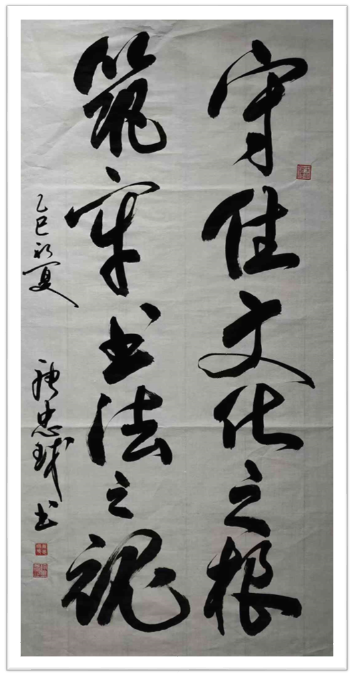 守住文化之根
筑牢书法之魂
乙巳初夏
忠 书